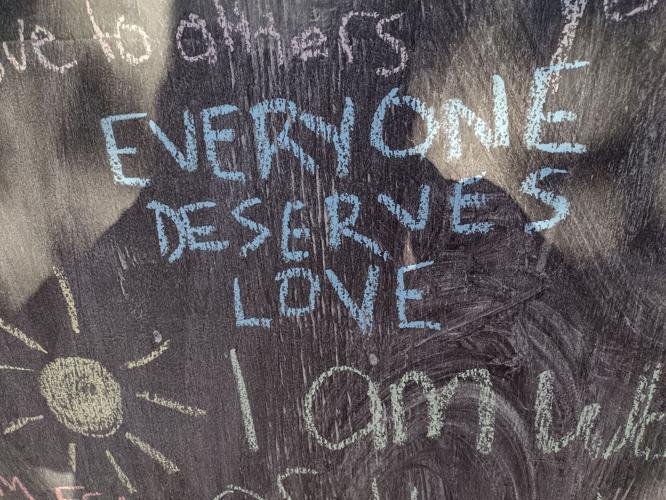 to others
EVERYONE
DESERVES
LOVE
I am